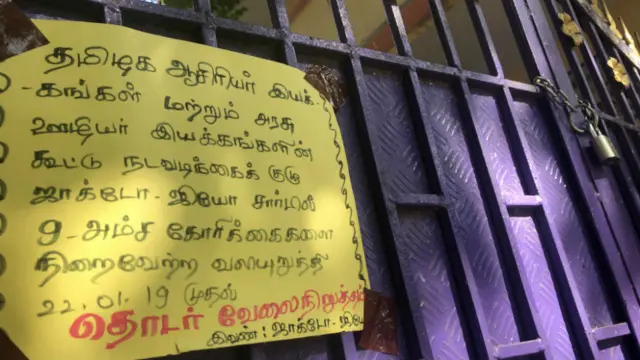 தமிழக ஆசிரியர் இயக்-
-கங்கள் மற்றும் அரசு
ஊழியர் இயக்கங்களின்
கூட்டு நடவடிக்கைக் குழு
ஜாக்டோ - ஜியோ சார்பில்
9 - அம்ச கோரிக்கைகளை
நிறைவேற்ற வலியுறுத்தி
22.01.19 முதல்
தொடர் வேலைநிறுத்தம்
இவண்: ஜாக்டோ - ஜியோ